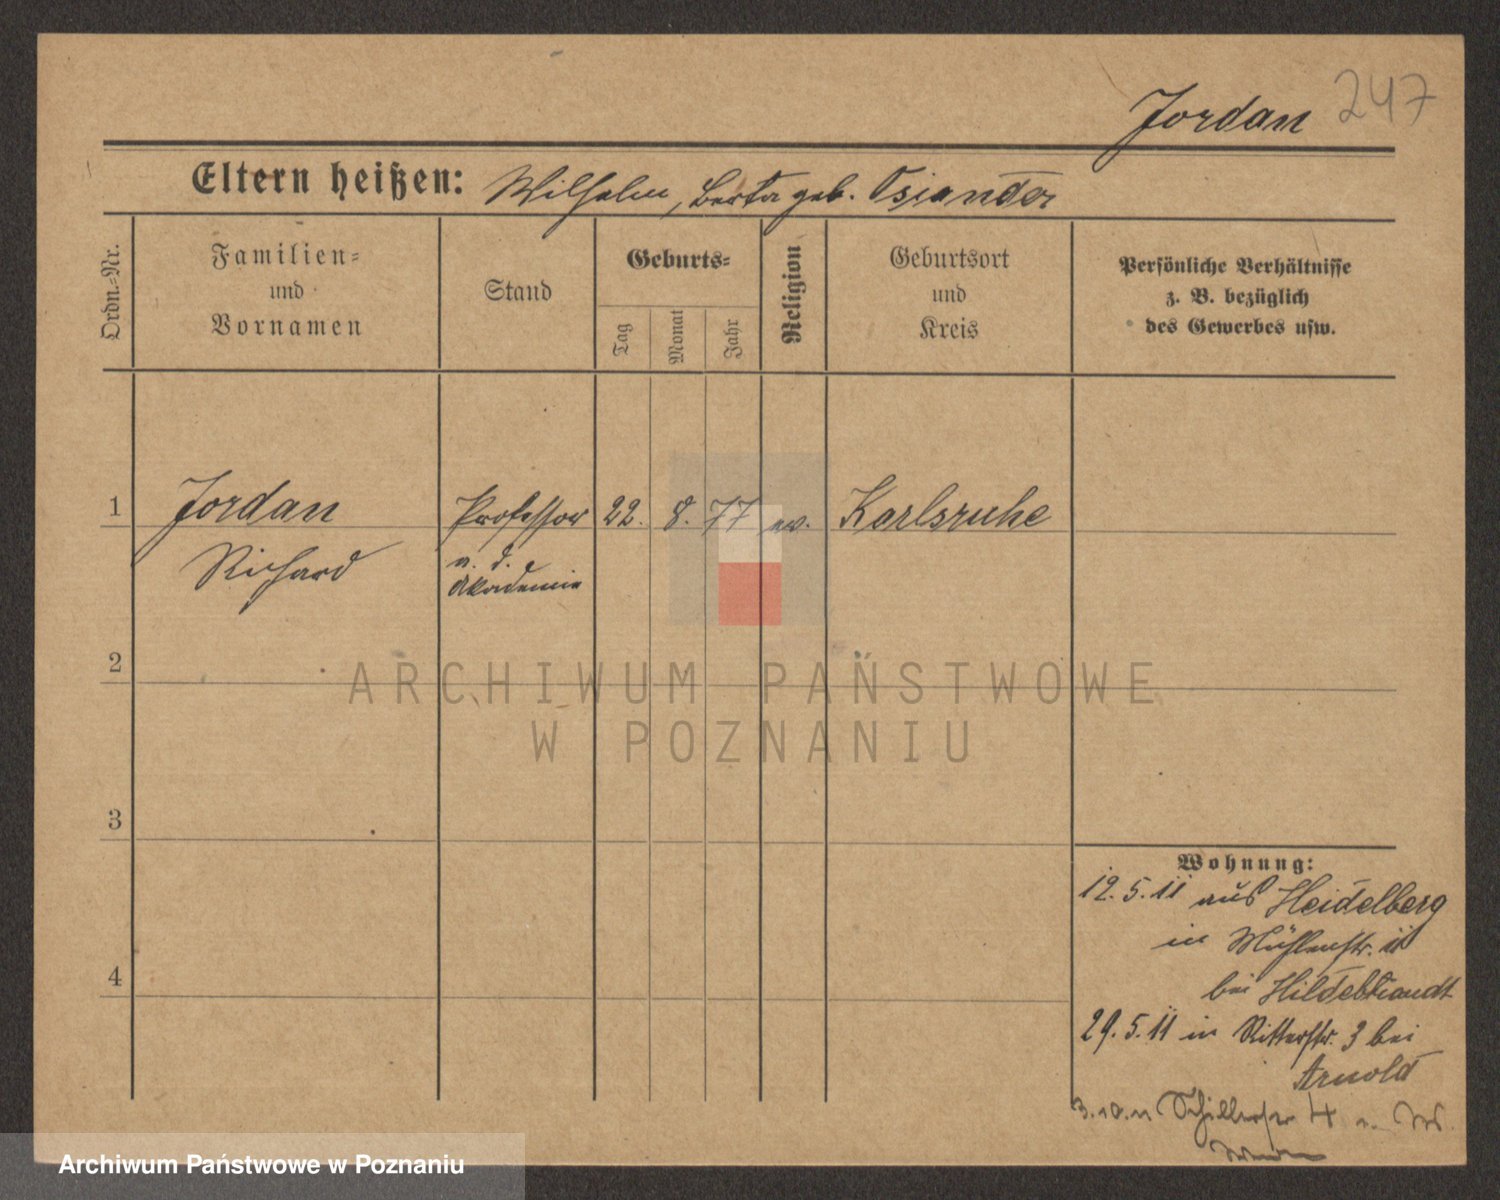 Jordan 247
Eltern heißen: Wilhelm, Berta geb. Osiander
Ordn.=Nr.
Familien=
und
Vornamen
Stand
Geburts=
Tag
Monat
Jahr
Religion
Geburtsort
und
Kreis
Persönliche Verhältnisse
z. B. bezüglich
des Gewerbes usw.
1 Jordan Professor 22. 8. 77 ev. Karlsruhe
Richard
a. d.
Akademie
2
3
4
Wohnung:
12.5.11 aus Heidelberg
in Mühlenstr. 11
bei Hildebrandt
29.5.11 in Ritterstr. 3 bei
Arnold
3.10.11 Schillerstr 4
ARCHIWUM PAŃSTWOWE
W POZNANIU
Archiwum Państwowe w Poznaniu